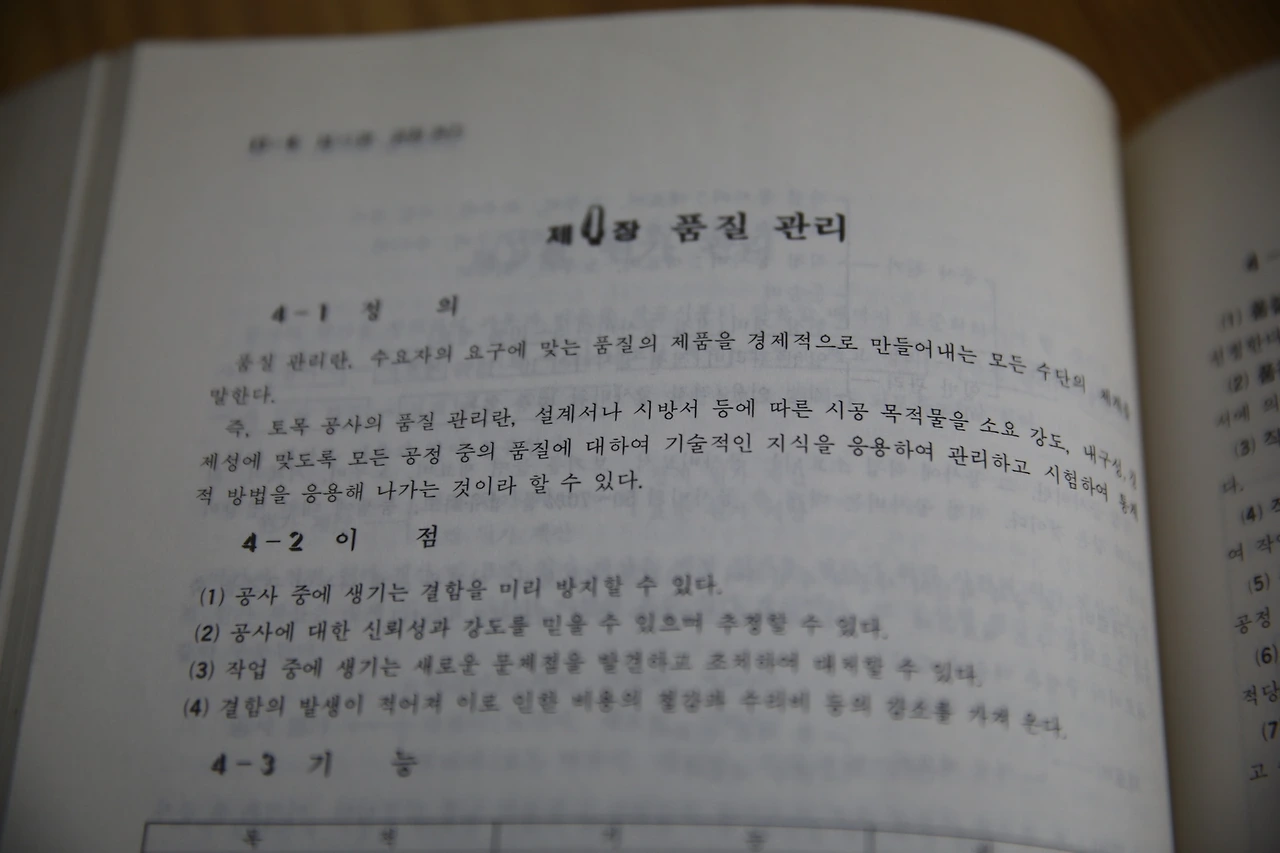 제4장 품질 관리
4-1 정 의
품질 관리란, 수요자의 요구에 맞는 품질의 제품을 경제적으로 만들어내는 모든 수단의
말한다.
즉, 토목 공사의 품질 관리란, 설계서나 시방서 등에 따른 시공 목적물을 소요 강도, 내구성,
제성에 맞도록 모든 공정 중의 품질에 대하여 기술적인 지식을 응용하여 관리하고 시험하여
적 방법을 응용해 나가는 것이라 할 수 있다.
4-2 이 점
(1) 공사 중에 생기는 결함을 미리 방지할 수 있다.
(2) 공사에 대한 신뢰성과 강도를 믿을 수 있으며 추정할 수 있다.
(3) 작업 중에 생기는 새로운 문제점을 발견하고 조치하여 대처할 수 있다.
(4) 결함의 발생이 적어져 이로 인한 비용의 절감과 수리비 등의 감소를 가져 온다.
4-3 기 능
(1)
(2)
서에 의
(3)
다.
(4)
여 작
(5)
공정
(6)
적당
(7
고